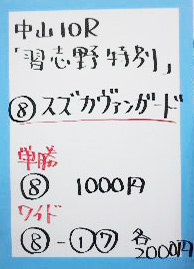 中山10R
「習志野特別」
⑧スズカヴァンガード
単勝
⑧ 1000円
ワイド
⑧-①⑦ 各2000円